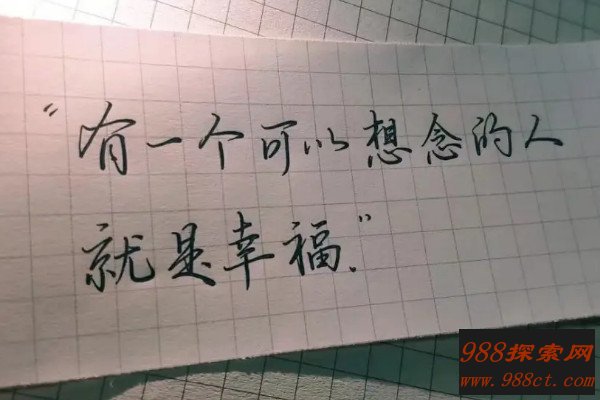 “有一个可以想念的人
就是幸福.”
988探索网
www.988ct.com